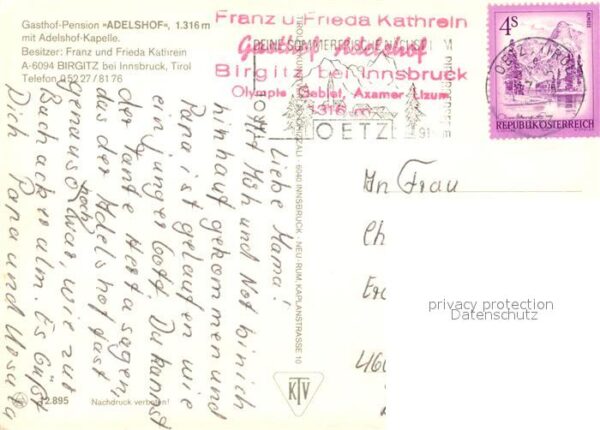 Gasthof-Pension »ADELSHOF«, 1.316 m
mit Adelshof-Kapelle.
Besitzer: Franz und Frieda Kathrein
A-6094 BIRGITZ bei Innsbruck, Tirol
Telefon 0 52 27 / 81 76
Franz u. Frieda Kathrein
Gasthof Adelshof
Birgitz bei Innsbruck
Olympia-Gebiet, Axamer-Lizum
1316 m
DEINE SOMMERFRISCHE
OETZ
4S
REPUBLIK ÖSTERREICH
OETZ, TIROL
Liebe Mama!
Mit Müh und Not bin ich
hinauf gekommen und
Papa ist gelaufen wie
ein junger Gott. Du kannst
der Tante Herta sagen,
das der Adelshof fast
noch
genauso war, wie zur
Bachackeralm. Es Grüßt
Dich Papa und Ursula
An Frau
Ch
460
6040 INNSBRUCK - NEU-RUM, KAPLANSTRASSE 10
KTV
12.895
Nachdruck verboten!
privacy protection
Datenschutz